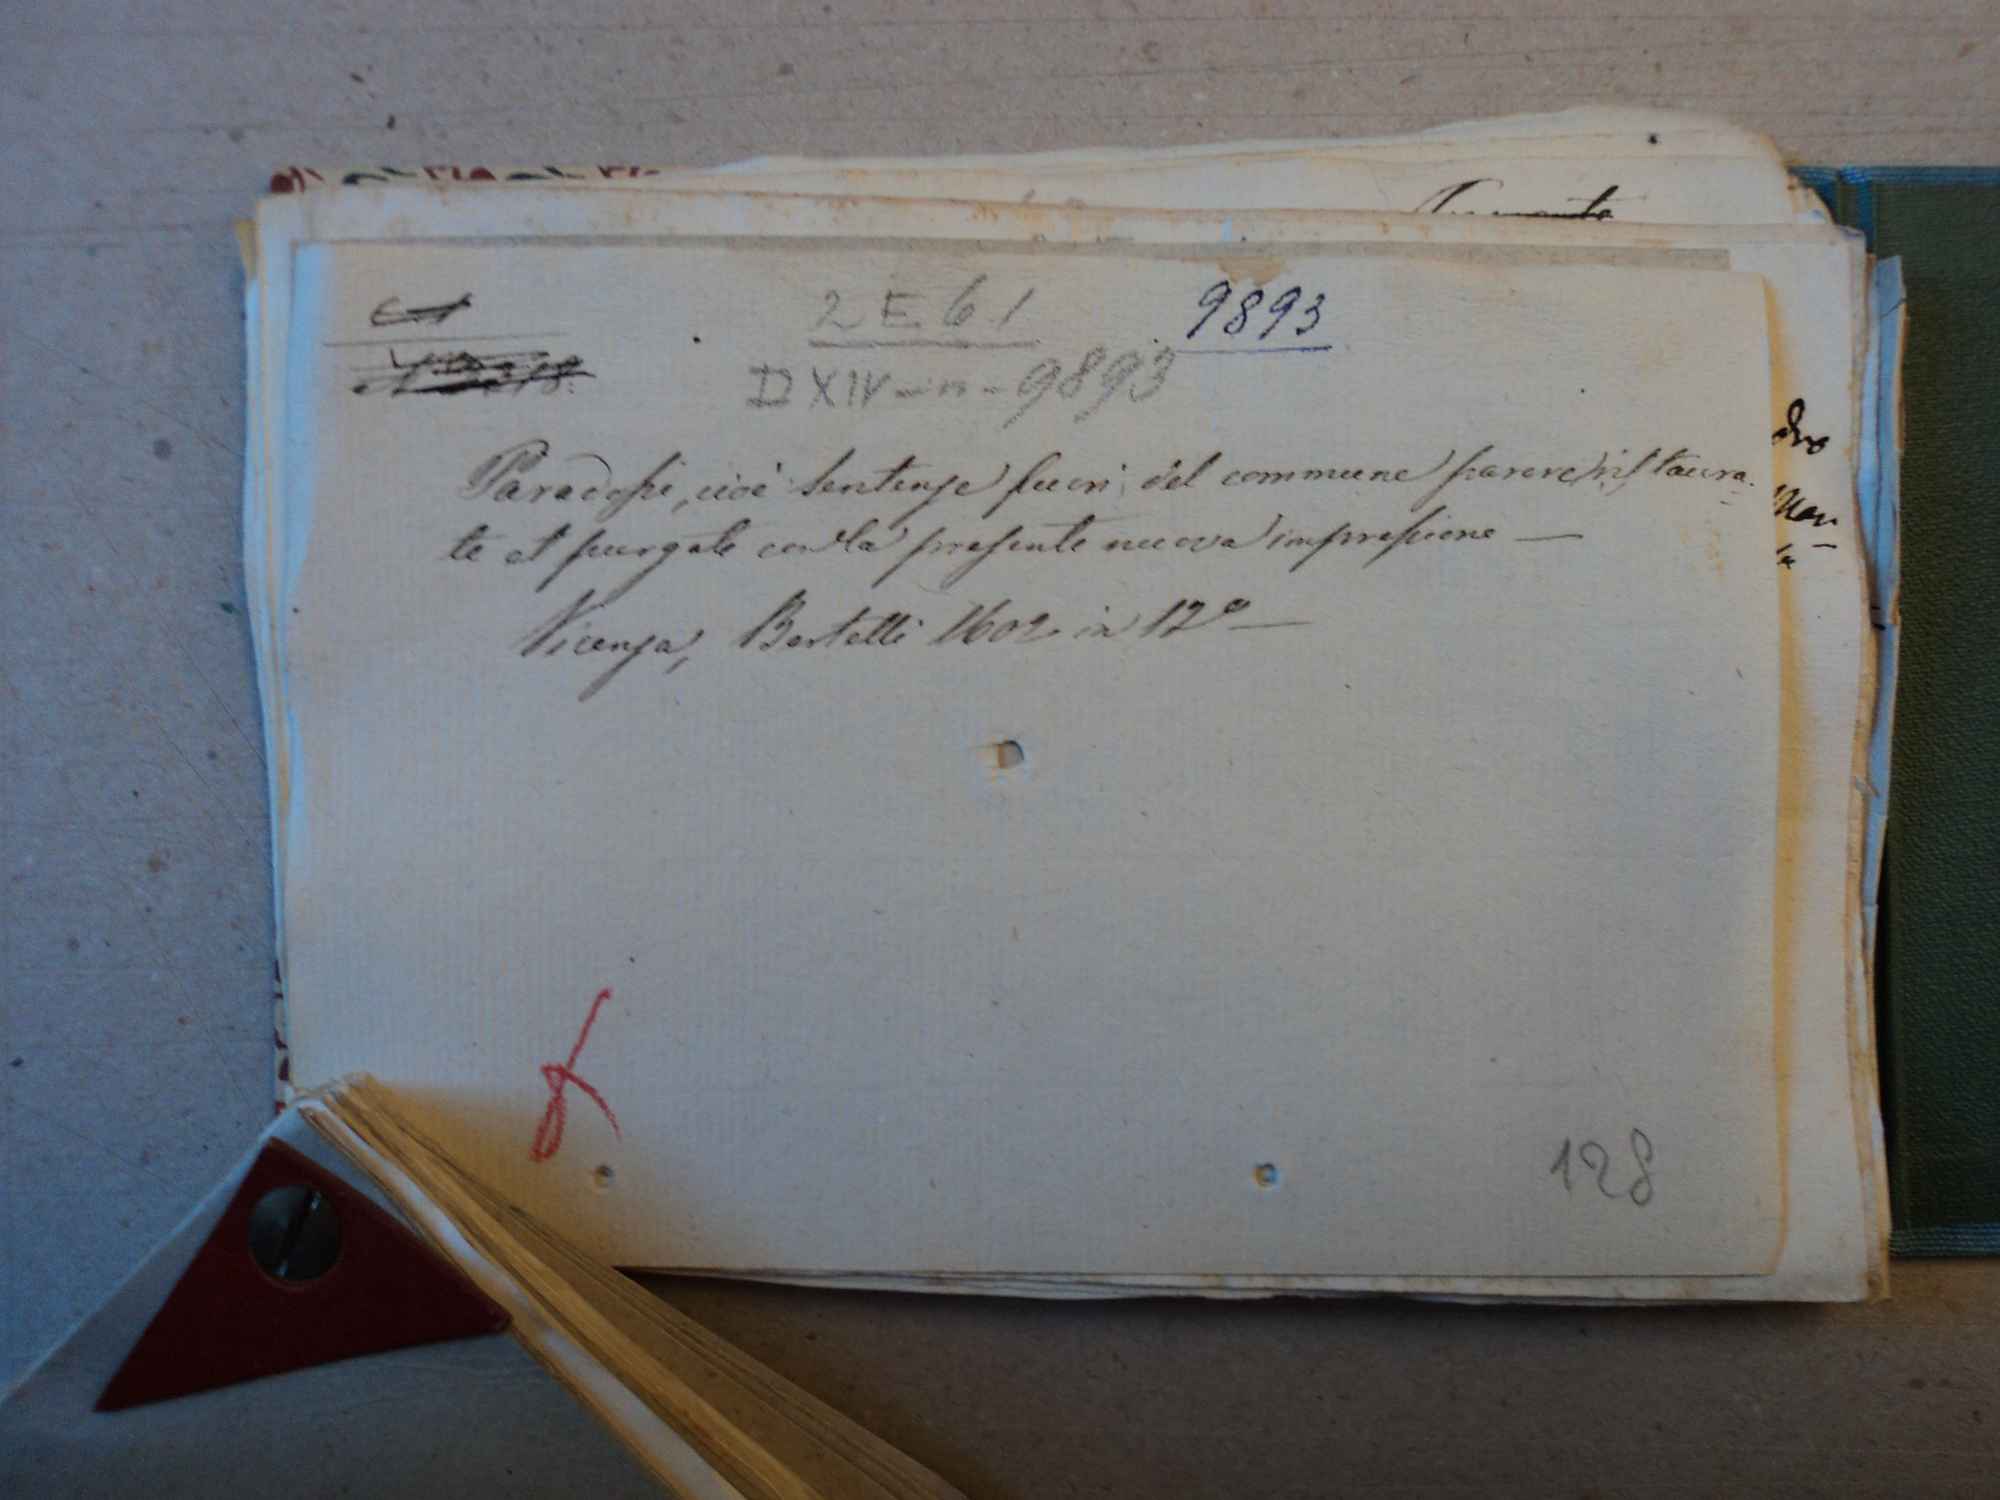 2 E 61
9893
D XIV - n - 9893
Paradossi, cioè sentenze fuori del commune parere, ristaura-
te et purgate con la presente nuova impressione —
Vicenza, Bertelli 1602 in 12º —
128